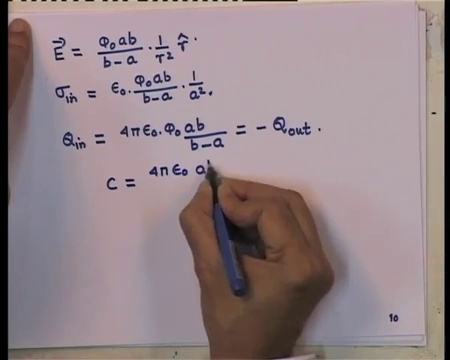 E⃗ = φ₀ab/(b−a) · 1/r² r̂.
σin = ε₀. φ₀ab/(b−a) · 1/a².
Qin = 4πε₀. φ₀ ab/(b−a) = − Qout.
C = 4πε₀ a
10